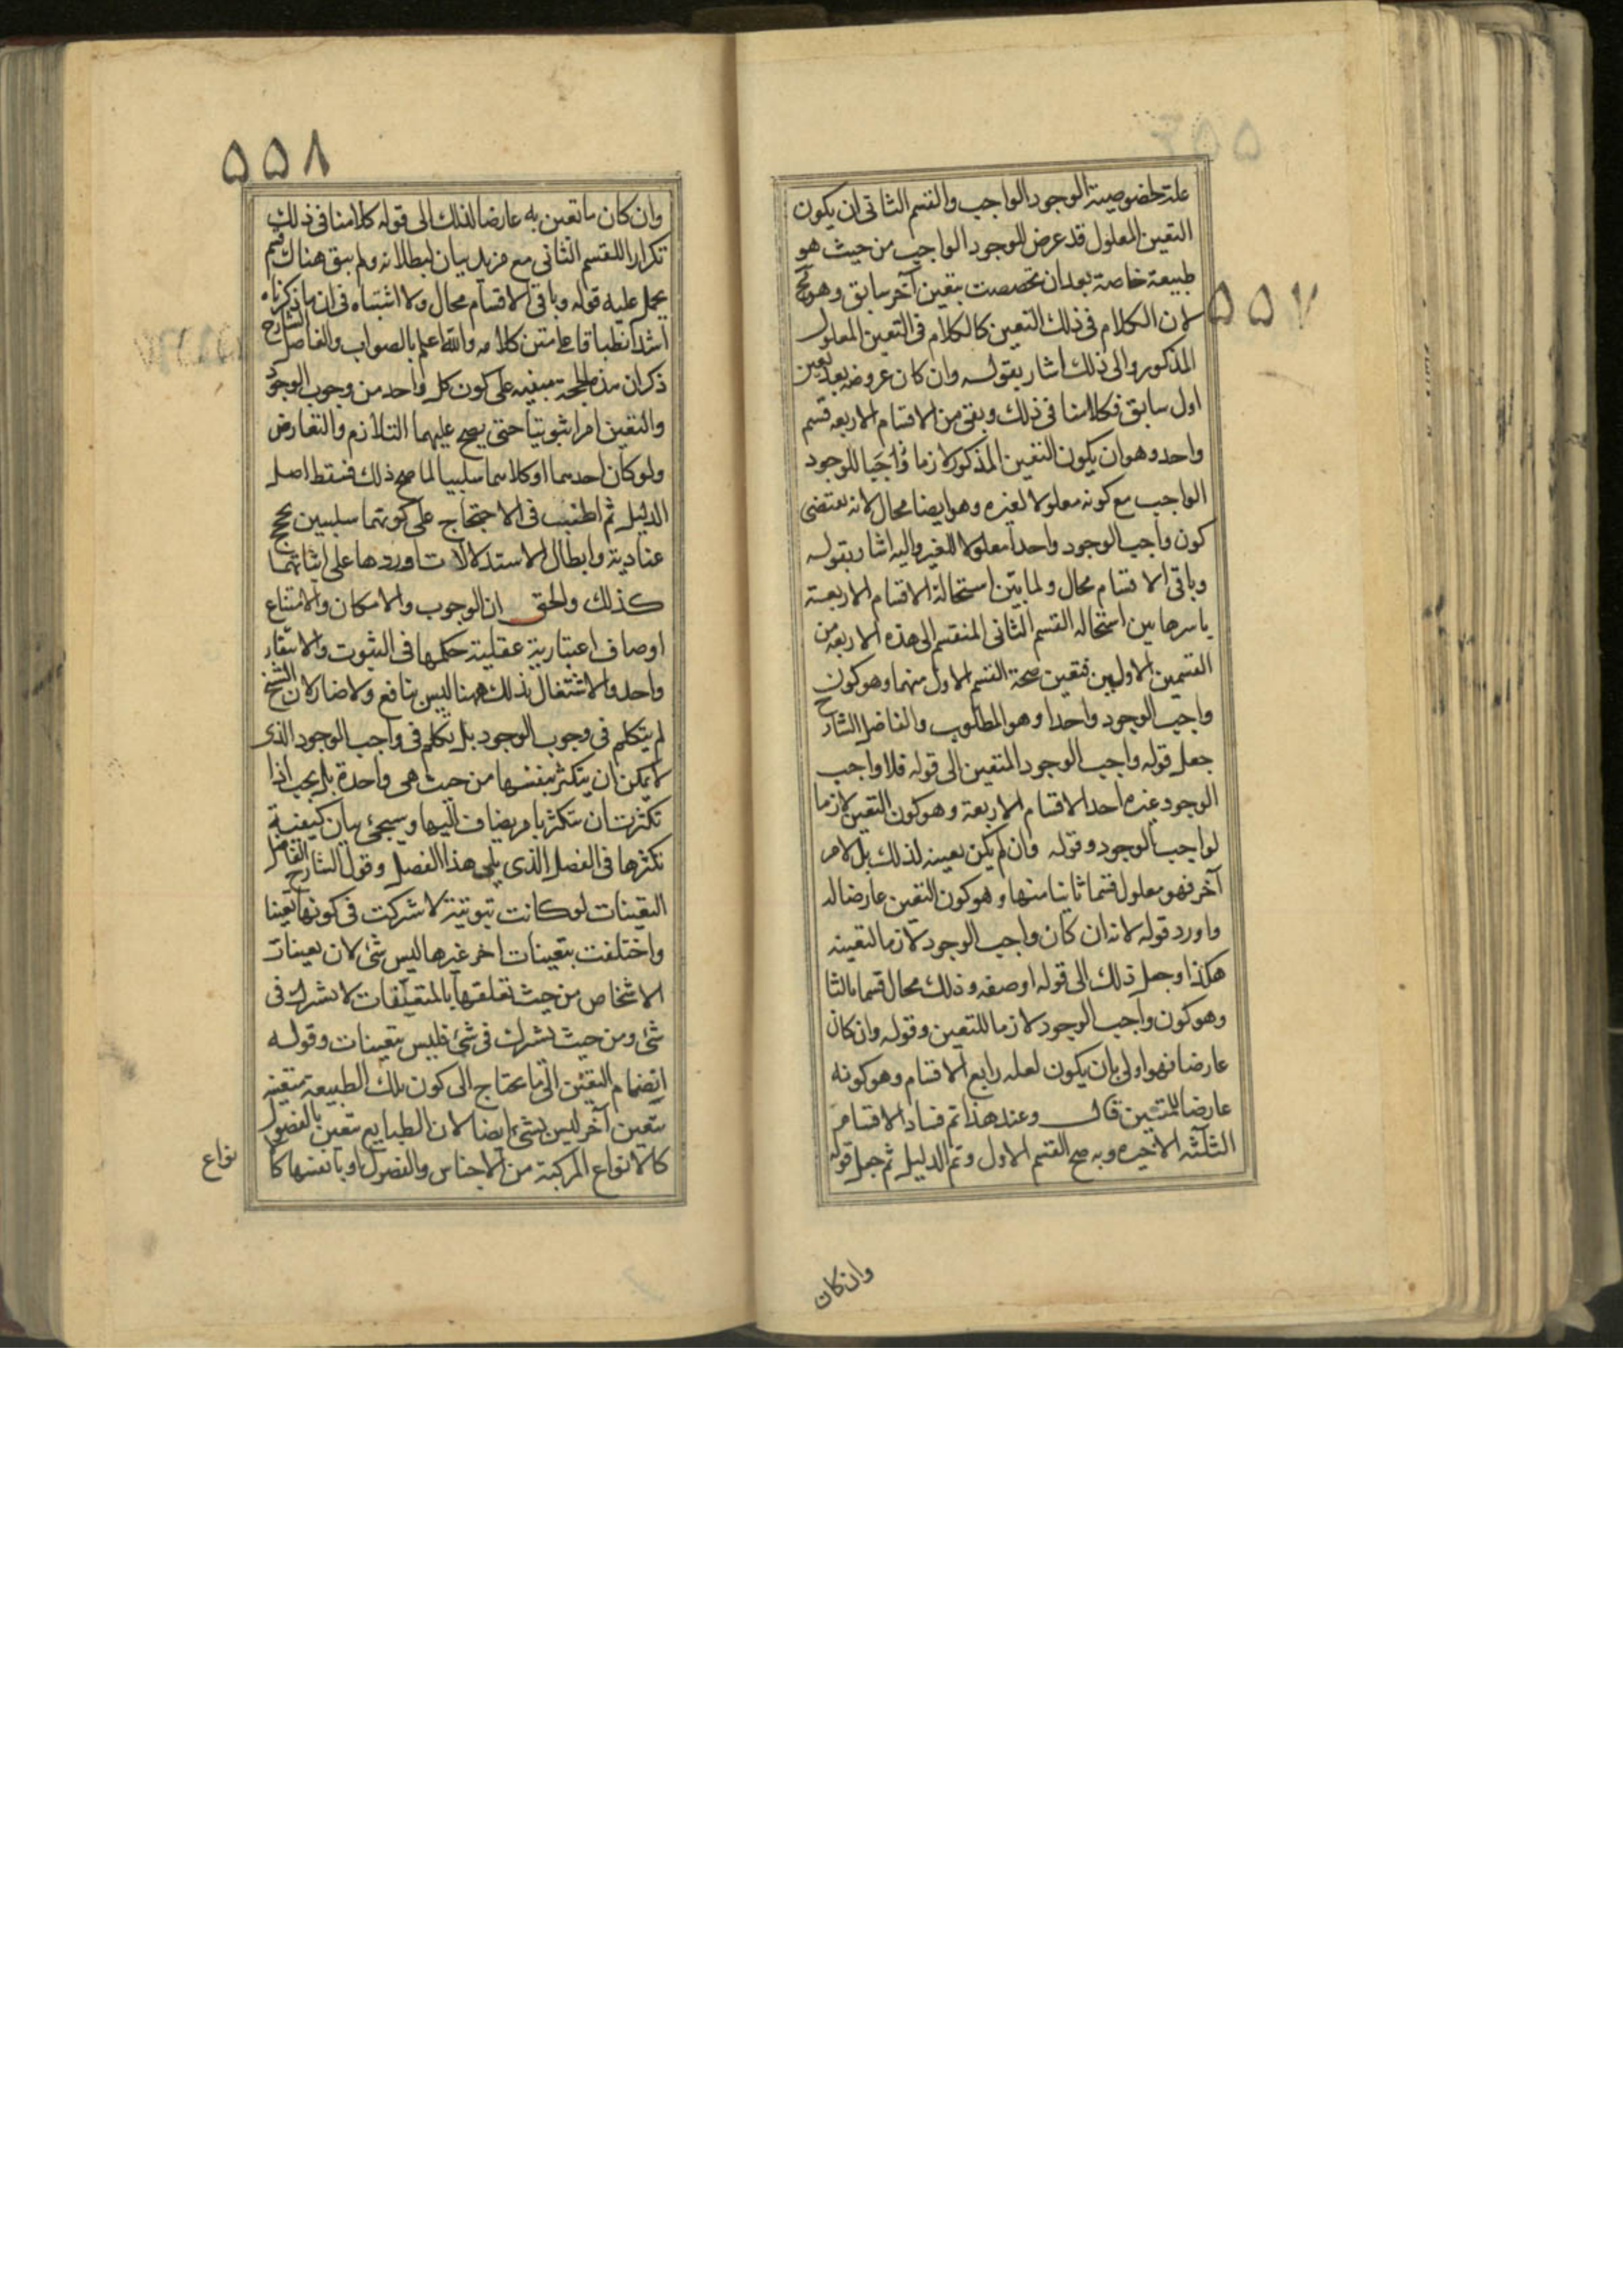 ٥٥٧
علة لخصوصية الوجود الواجب والقسم الثانى ان يكون
التعين المعلول قد عرض للوجود الواجب من حيث هو
طبيعة خاصة بعد ان تخصصت بتعين آخر سابق وهو مح
لان الكلام فى ذلك التعين كالكلام فى التعين المعلول
المذكور والى ذلك اشار بقوله وان كان عروضه بعد تعين
اول سابق فكلامنا فى ذلك وبقى من الاقسام الاربعه قسم
واحد وهو ان يكون التعين المذكور لازما للوجود
الواجب مع كونه معلولا لغيره وهو ايضا محال لانه يقتضى
كون واجب الوجود واحدا معلولا للغير واليه اشار بقوله
وباقى الاقسام محال ولما بين استحالة الاقسام الاربعة
باسرها بين استحاله القسم الثانى المنقسم الى هذه الاربعه من
القسمين الاولين فتعين صحة القسم الاول منهما وهو كون
واجب الوجود واحدا وهو المطلوب والفاضل الشارح
جعل قوله واجب الوجود المتعين الى قوله فلا واجب
الوجود غيره احد الاقسام الاربعة وهو كون التعين لازما
لواجب الوجود وقوله وان لم يكن تعينه لذلك بل لامر
آخر فهو معلول قسما ثانيا منها وهو كون التعين عارضا له
واورد قوله لانه ان كان واجب الوجود لازما لتعينه
هكذا وجعل ذلك الى قوله اوصفه وذلك محال قسما ثالثا
وهو كون واجب الوجود لازما للتعين وقوله وان كان
عارضا فهو اولى بان يكون لعله رابع الاقسام وهو كونه
عارضا للمتعين قال وعند هذا تم فساد الاقسام
الثلثه الاخيره وبه صح القسم الاول وتم الدليل ثم جعل قوله
وان كان
٥٥٨
وان كان ما تعين به عارضا لذلك الى قوله كلامنا فى ذلك
تكرارا للقسم الثانى مع مزيد بيان لبطلانه ولم يبق هناك قسم
يحمل عليه قوله وباقى الاقسام محال ولا اشتباه فى ان ما ذكرناه
اشد انطباقا على متن كلامه والله اعلم بالصواب والفاضل الشارح
ذكر ان هذه الحجة مبنيه على كون كل واحد من وجوب الوجود
والتعين امرا ثبوتيا حتى يصح عليهما التلازم والتعارض
ولو كان احدهما او كلاهما سلبيا لما صح ذلك فسقط اصل
الدليل ثم اطنب فى الاحتجاج على كونهما سلبيين بحجج
عنادية وابطال الاستدلالات اوردها على اثباتهما
كذلك والحق ان الوجوب والامكان والامتناع
اوصاف اعتبارية عقلية حكمها فى الثبوت والانتفاء
واحد والاشتغال بذلك ههنا ليس بنافع ولا ضار لان الشيخ
لم يتكلم فى وجوب الوجود بل تكلم فى واجب الوجود الذى
لا يمكن ان يتكثر بنفسها من حيث هى واحدة بل يجب اذا
تكثرت ان تتكثر بامر يضاف اليها وسيجئ بيان كيفية
تكثرها فى الفصل الذى يلى هذا الفصل وقول الشارح الفاضل
التعينات لو كانت ثبوتية لاشركت فى كونها تعينا
واختلفت بتعينات اخر غيرها ليس شئ لان تعينات
الاشخاص من حيث تعلقها بالمتعلقات لا تشرك فى
شئ ومن حيث تشرك فى شئ فليس بتعينات وقوله
انضمام التعين الى ما يحتاج الى كون تلك الطبيعة متعينه
بتعين آخر ليس بشئ ايضا لان الطبايع تتعين بالفصول
كالانواع المركبة من الاجناس والفصول او بانفسها كا
نواع